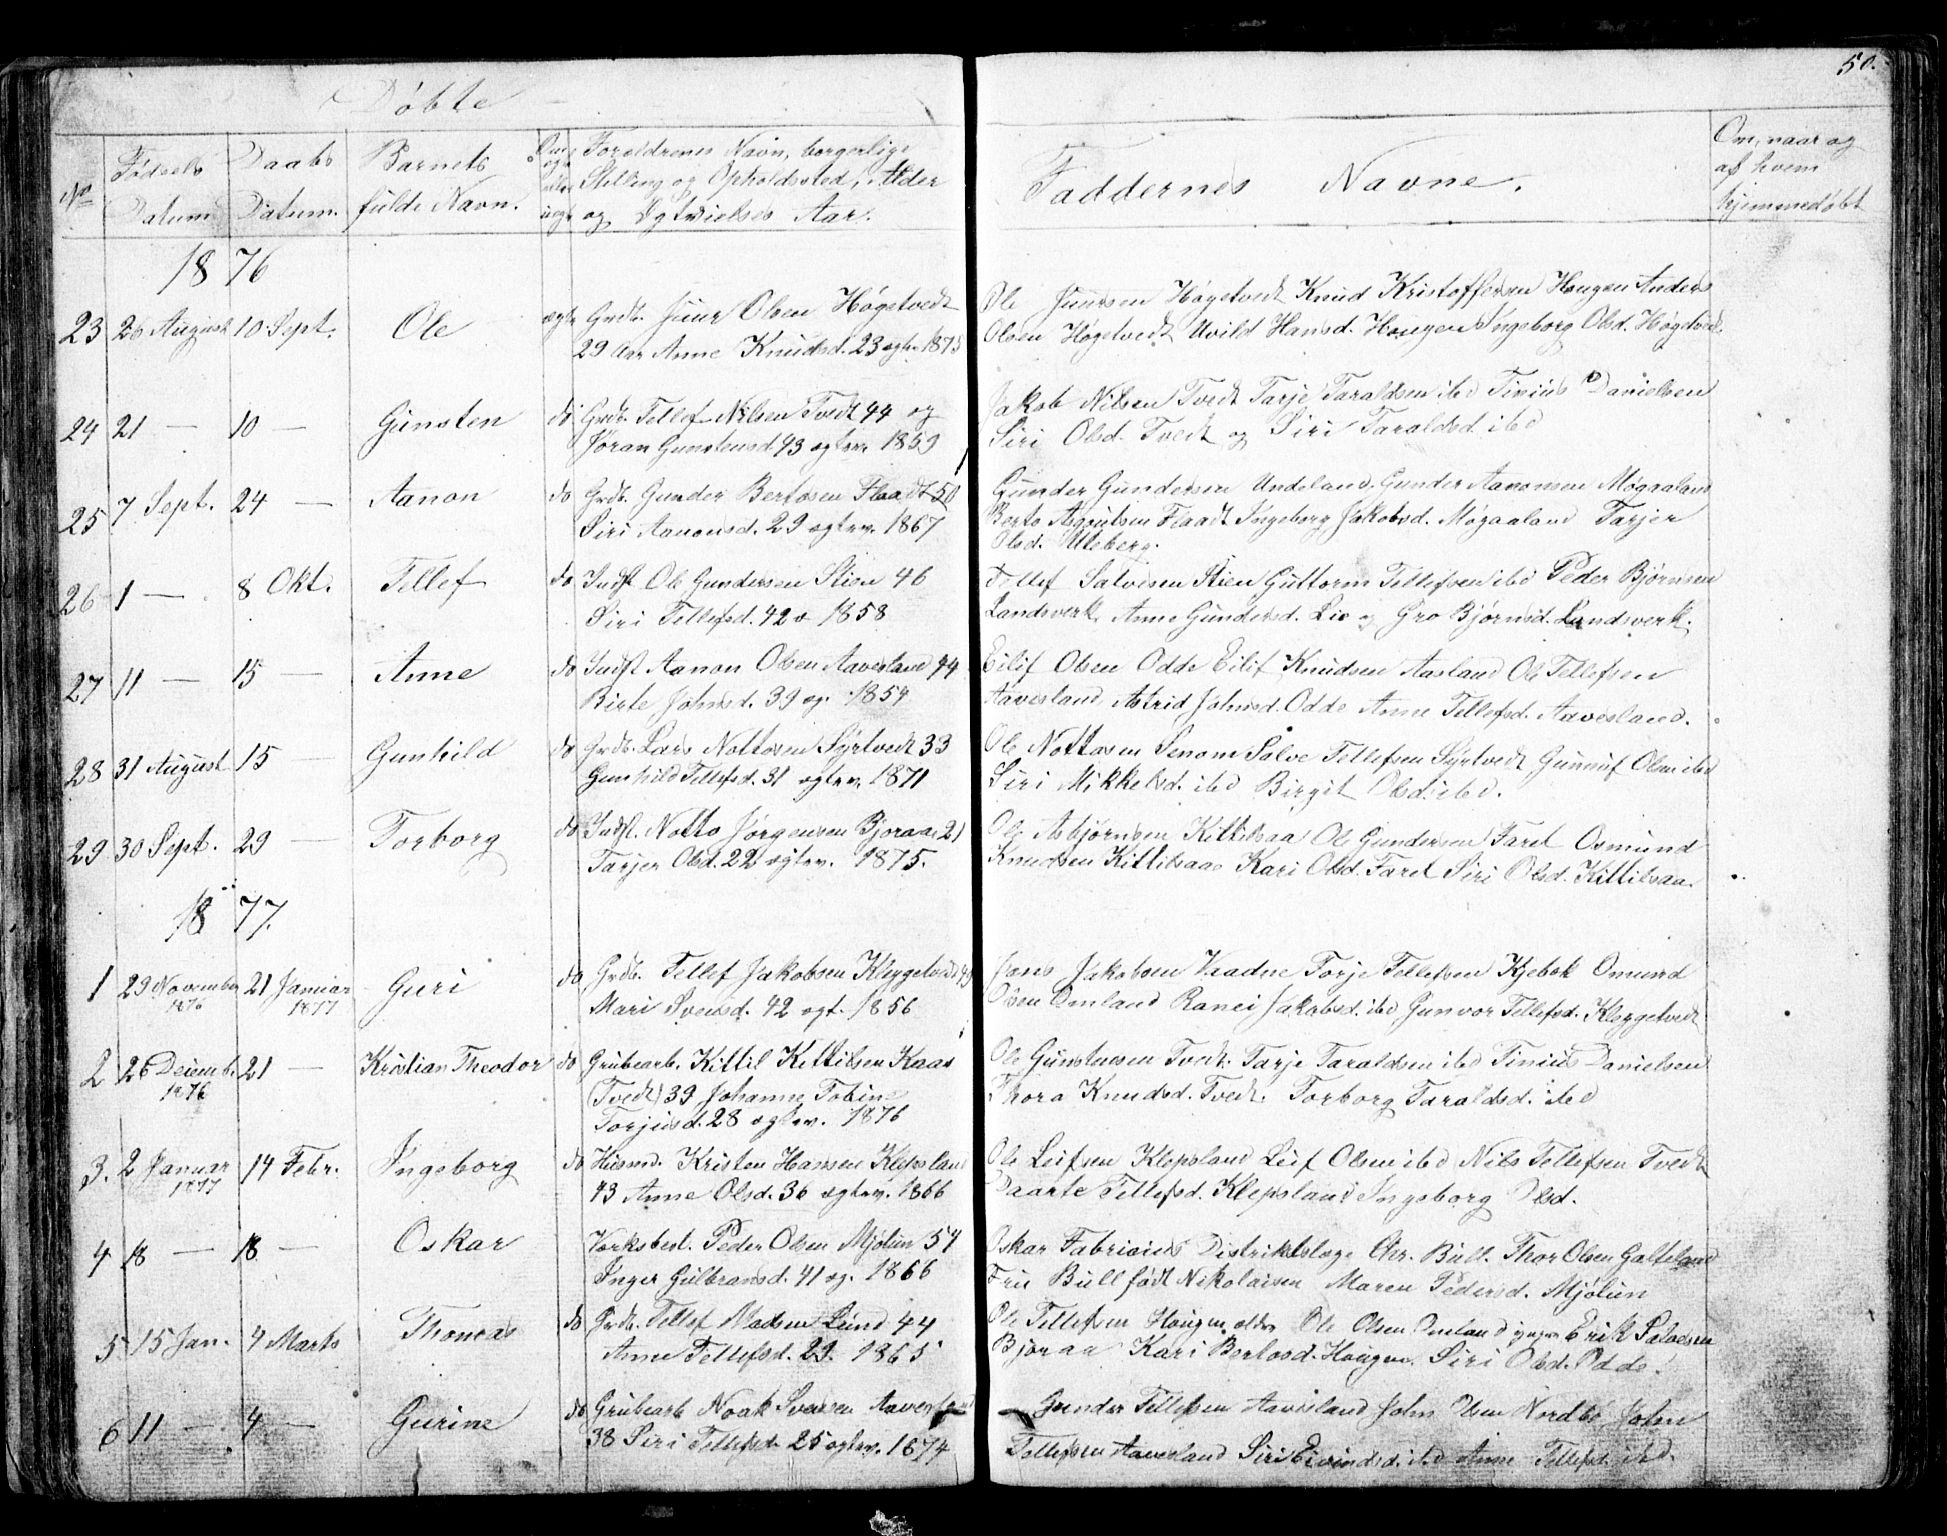 50.
Døbte
No
Fødsels
Datum
Daabs
Datum.
Barnets
fulde Navn.
Forældrenes Navn, borgerlige
Stilling og Opholdssted, Alder
og Ægtvielses Aar.
Faddernes Navne.
Om, naar og
af hvem
hjemmedøbt
1876
23 26 August 10 Sept. Ole ægte Grdb. Juur Olsen Høgetvedt
29 Aar Anne Knudsd. 23 ægtv. 1875
Ole Juursen Høgetvedt Knud Kristoffersen Hougen Anders
Olsen Høgetvedt Uvild Hansd. Hougen Ingeborg Olsd. Høgetvedt.
24 21 — 10 — Gunsten do Grdb. Tellef Nilsen Tvedt 44 og
Jøran Gunstensd 43 ægtev. 1859
Jakob Nilsen Tvedt Tarje Taraldsen ibd Tinius Danielsen
Siri Olsd. Tvedt og Siri Taraldsd. ibd
25 7 Sept. 24 — Aanon do Grdb. Gunder Bertosen Flaadt 50
Siri Aanonsd. 29 ægtev. 1867
Gunder Gundersen Undeland, Gunder Aanonsen Møgaaland
Berto Asgoutsen Flaadt Ingeborg Jakobsd. Møgaaland Tarjer
Olsd. Uleberg.
26 1 — 8 Okt. Tellef do Indst Ole Gundersen Stien 46
Siri Tellefsd. 42 æ 1858
Tellef Salvesen Stien Guttorm Tellefsen ibd Peder Bjørnsen
Landsverk, Anne Gundersd. Lie og Gro Bjørnsd. Landsverk.
27 11 — 15 — Anne do Indst Aanon Olsen Aavesland 44
Birte Johnsd. 39 æg. 1854
Eilif Olsen Odde Eilif Knudsen Aasland Ole Tellefsen
Aavesland, Astrid Johnsd. Odde Anne Tellefsd. Aavesland.
28 31 August 15 — Gunhild do Grdb. Lars Nottosen Syrtvedt 33
Gunhild Tellefsd. 31 ægtev. 1871
Ole Nottosen Senom Salve Tellefsen Syrtvedt Gunnuf Olsen ibd
Siri Mikkelsd. ibd Birgit Olsd. ibd.
29 30 Sept. 29 — Torborg do Indst. Notto Jørgensen Bjoraa 21
Tarjer Olsd. 22 ægtev. 1875.
Ole Asbjørnsen Kittilsaa Ole Gundersen Faret Osmund
Knudsen Kittilsaa Kari Olsd. Faret Siri Olsd. Kittilsaa.
1877.
1 29 November 21 Januar Guri do Grdb. Tellef Jakobsen Kleggetvedt 49
1876 1877
Mari Svensd. 42 ægt. 1856
Jens Jakobsen Vaadne Torje Tellefsen Kjebek Omund
Olsen Omland Ranei Jakobsd. ibd Gunvor Tellefsd. Kleggetvedt
2 26 Decemb. 21 — Kristian Theodor do Grubearb. Kittil Kittilsen Kaas
1876
(Tvedt) 39 Johanne Tobine
Torjusd. 28 ægtev. 1876
Ole Gunstensen Tvedt. Tarje Taraldsen ibd Tinius Danielsen
Thora Knudsd. Tvedt. Torborg Taraldsd. ibd
3. 2 Januar 14 Febr. Ingeborg do Husmd. Kristen Hansen Klepsland
1877
43 Anne Olsd. 36 ægtev. 1866
Ole Leifsen Klepsland Leif Olsen ibd Nils Tellefsen Tvedt
Daarte Tellefsd. Klepsland Ingeborg Olsd.
4 18 — 18 — Oskar Værksbest. Peder Olsen Mjølun 54
Inger Gulbransd. 41 æg. 1866
Oskar Fabricius Distriktslæge Chr. Bull. Thor Olsen Galteland
Fru Bull født Nikolaisen Maren Pedersd. Mjølun
5 15 Jan. 4 Marts Thomas do Grdb. Tellef Madsen Lund 44
Anne Tellefsd. 29. 1865
Ole Tellefsen Hougen, ældr Ole Olsen Omland yngr Erik Salvesen
Bjoraa Kari Bertosd. Hougen. Siri Olsd. Odde.
6 11 — 4 — Gurine do Grubearb Noak Svensen Aavesland
38 Siri Tellefsd. 25 ægtev. 1874
Gunder Tellefsen Aavesland John Olsen Nordbø John
Tellefsen Aavesland Siri Eivindsd. ibd Anne Tellefsd. ibd.